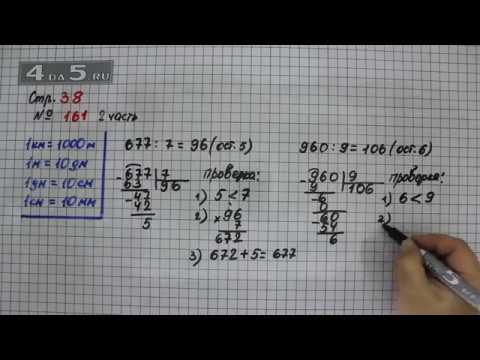 4 DA 5.RU
Стр. 38
№ 161 2 часть
1км = 1000м
1м = 10дм
1дм = 10см
1см = 10мм
677 : 7 = 96 (ост. 5)
- 677 | 7
63 | 96
- 47
42
5
проверка:
1) 5 < 7
2) × 96
7
672
3) 672 + 5 = 677
960 : 9 = 106 (ост. 6)
- 960 | 9
9 | 106
- 6
0
- 60
54
6
проверка:
1) 6 < 9
2)